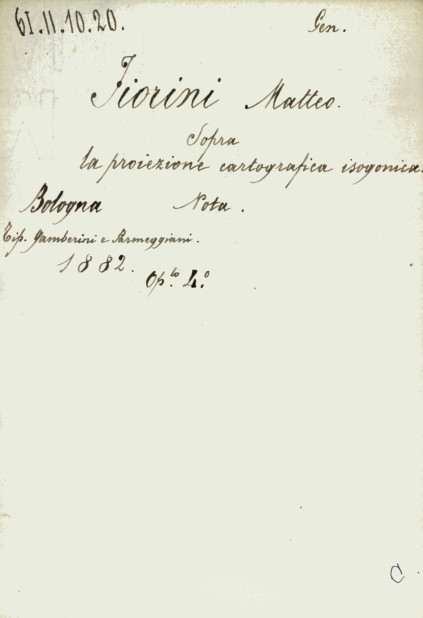 61.11.10.20. Gen.
Fiorini Matteo.
Sopra
la proiezione cartografica isogonica.
Bologna Nota.
Tip. Gamberini e Parmeggiani.
1882.
Op.lo 4.o
C